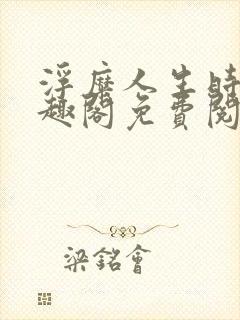 浮靡人生時
趣閣免費閱
梁銘會